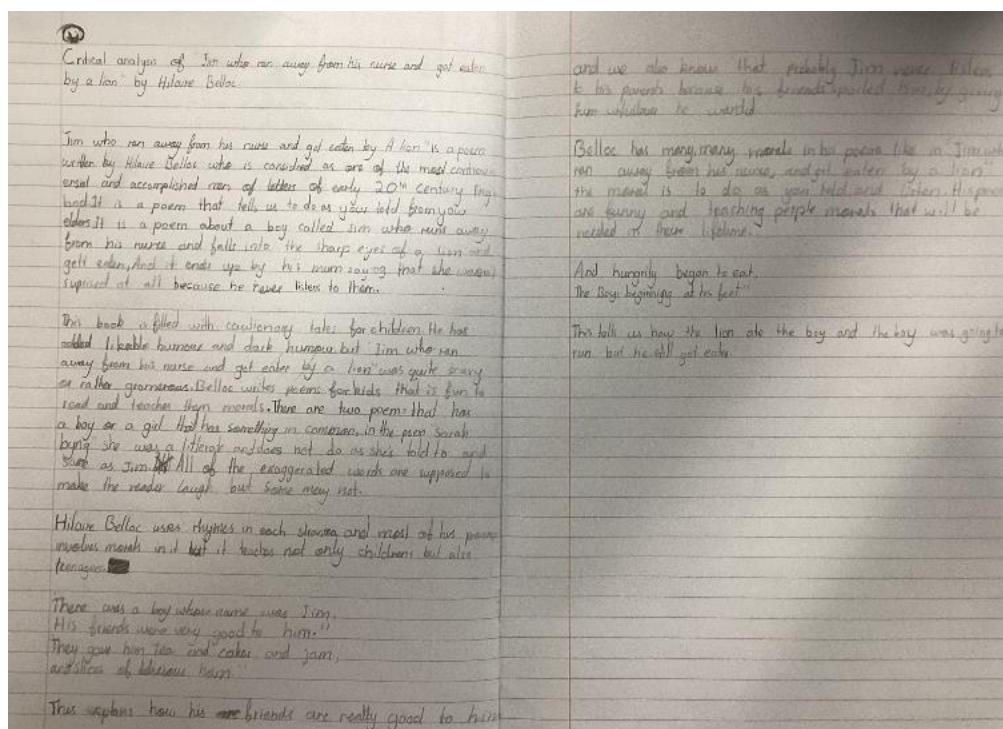 Critical analysis of "Jim who ran away from his nurse and got eaten
by a lion" by Hilaire Belloc
Jim who ran away from his nurse and got eaten by A lion" is a poem
written by Hilaire Belloc who is considred as one of the most controv
ersial and accomplished men of letters of early 20th century Eng
land.It is a poem that tells us to do as your told from your
elders.It is a poem about a boy called Jim who runs away
from his nurse and falls into the sharp eyes of a lion and
gets eaten,And it ends up by his mum saying that she wasn't
suprised at all because he never listens to them.
This book is filled with cautionary tales for children. He has
added likeable humour and dark humour but "Jim who ran
away from his nurse and got eaten by a lion" was quite scary
or rather Belloc writes poems for kids that is fun to
read and teaches them morals. There are two poems that has
a boy or a girl that has something in common, in the poem Sarah
byng she was a and does not do as she's told to and
same as Jim. All of the exaggerated words are supposed to
make the reader laugh but some may not.
Hilaire Belloc uses rhymes in each and most of his poems
involves morals in it but it teaches not only childrens but also
teenagers.
There was a boy whose name was Jim,
His friends were very good to him."
They gave him Tea and cakes and jam,
and slices of delicious ham.
This explains how his friends are really good to him
and we also know that probably Jim never listens
to his parents because his friends spoiled him, by giving
him whatever he wanted
Belloc has many, many morals in his poems like in "Jim who
ran away from his nurse, and got eaten by a lion"
the moral is to do as you told and listen. His poems
are funny and teaching people morals that will be
needed in their lifetime.
And hungrily began to eat,
The Boy: beginning at his feet"
This tells us how the lion ate the boy and the boy was going to
run but he still got eaten.